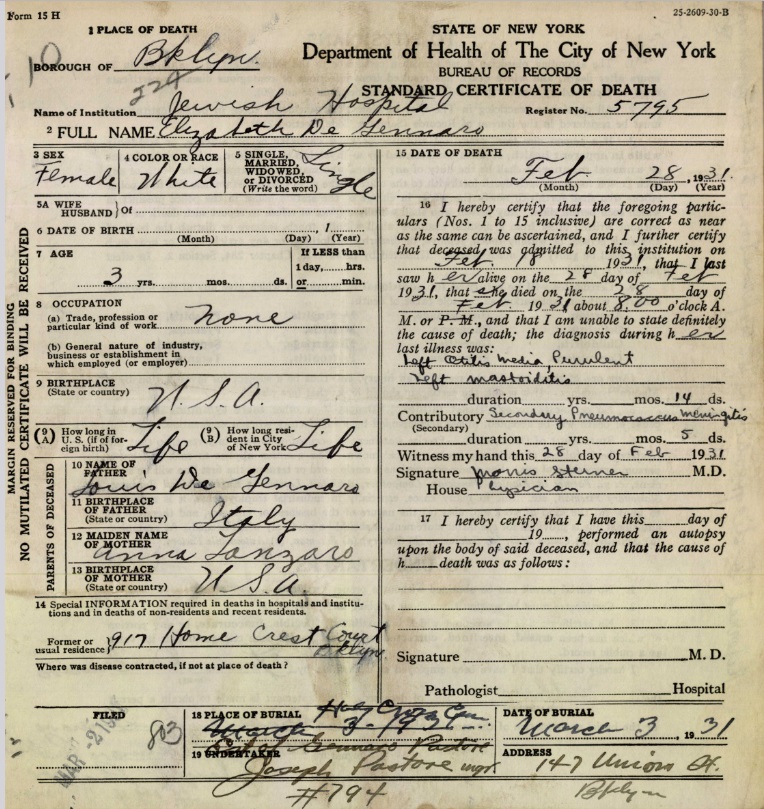 Form 15 H
25-2609-30-B
1 PLACE OF DEATH
BOROUGH OF Bklyn.
STATE OF NEW YORK
Department of Health of The City of New York
BUREAU OF RECORDS
STANDARD CERTIFICATE OF DEATH
Name of Institution Jewish Hospital
Register No. 5795
2 FULL NAME Elizabeth De Gennaro
3 SEX Female
4 COLOR OR RACE White
5 SINGLE, MARRIED, WIDOWED, or DIVORCED (Write the word) Single
5A WIFE HUSBAND } of
6 DATE OF BIRTH , 1
(Month) (Day) (Year)
7 AGE
3 yrs. mos. ds.
If LESS than
1 day, hrs.
or min.
8 OCCUPATION
(a) Trade, profession or particular kind of work none
(b) General nature of industry,
business or establishment in
which employed (or employer)
9 BIRTHPLACE
(State or country) U.S.A.
(9 A) How long in U. S. (if of foreign birth) Life
(9 B) How long resident in City of New York Life
PARENTS OF DECEASED
10 NAME OF FATHER Louis De Gennaro
11 BIRTHPLACE OF FATHER (State or country) Italy
12 MAIDEN NAME OF MOTHER Anna Lanzaro
13 BIRTHPLACE OF MOTHER (State or country) U.S.A.
14 Special INFORMATION required in deaths in hospitals and institu-
tions and in deaths of non-residents and recent residents.
Former or usual residence } 917 Home Crest Court
Bklyn
Where was disease contracted, if not at place of death?
MARGIN RESERVED FOR BINDING
NO MUTILATED CERTIFICATE WILL BE RECEIVED
15 DATE OF DEATH
Feb 28, 1931
(Month) (Day) (Year)
16 I hereby certify that the foregoing partic-
ulars (Nos. 1 to 15 inclusive) are correct as near
as the same can be ascertained, and I further certify
that deceased was admitted to this institution on
Feb 18 1931, that I last
saw h er alive on the 28 day of Feb
1931, that she died on the 28 day of
Feb 1931 about 8.00 o'clock A.
M. or P. M., and that I am unable to state definitely
the cause of death; the diagnosis during h er
last illness was:
Left Otitis Media, Purulent
Left mastoiditis
duration yrs. mos. 14 ds.
Contributory Secondary Pneumococcus meningitis
(Secondary)
duration yrs. mos. 5 ds.
Witness my hand this 28 day of Feb 1931
Signature Morris Sterner M.D.
House Physician
17 I hereby certify that I have this day of
19 , performed an autopsy
upon the body of said deceased, and that the cause of
h death was as follows:
Signature M. D.
Pathologist Hospital
FILED
MAR -2 1931
803
18 PLACE OF BURIAL Holy Cross Cem.
March 3-1931
DATE OF BURIAL
March 3, 1931
19 UNDERTAKER
Gennaro Pastore
Joseph Pastore mgr.
#794
ADDRESS 147 Union St.
Bklyn